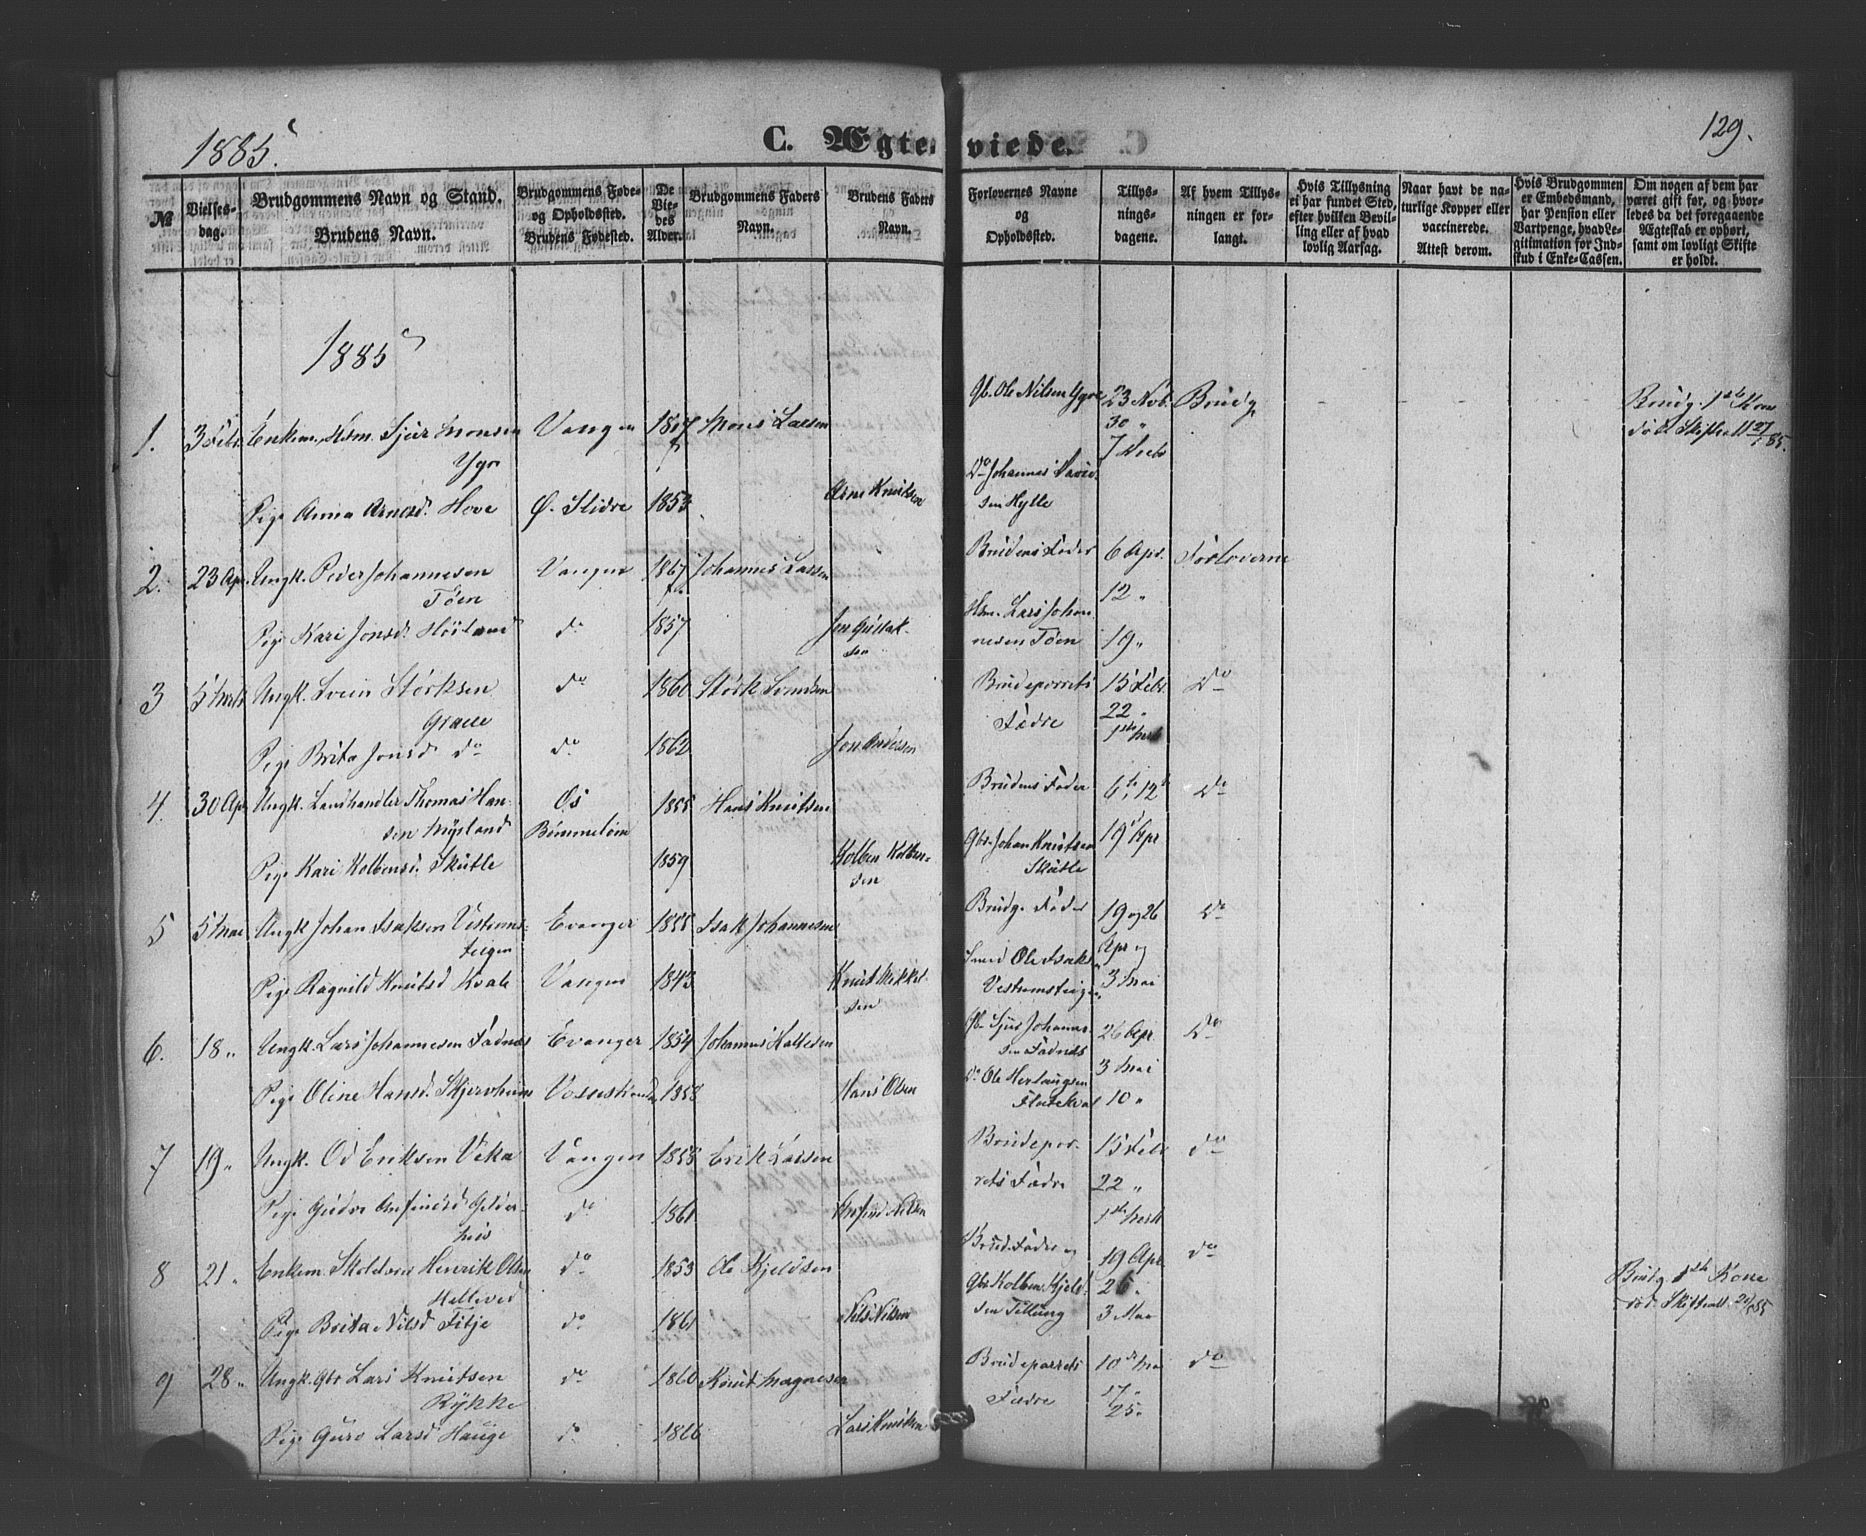 1885.
C. Ægteviede.
129.
№
Vielses-
dag.
Brudgommens Navn og Stand.
Brudens Navn.
Brudgommens Føde-
og Opholdssted.
Brudens Fødested.
De
Vie-
des
Alder.
Brudgommens Faders
Navn.
Brudens Faders
Navn.
Forlovernes Navne
og
Opholdssted.
Tillys-
nings-
dagene.
Af hvem Tillys-
ningen er for-
langt.
Hvis Tillysning
ei har fundet Sted,
efter hvilken Bevil-
ling eller af hvad
lovlig Aarsag.
Naar havt de na-
turlige Kopper eller
vaccinerede.
Attest derom.
Hvis Brudgommen
er Embedsmand,
har Pension eller
Vartpenge, hvad Le-
gitimation for Ind-
skud i Enke-Cassen.
Om nogen af dem har
været gift før, og hvor-
ledes da det foregaaende
Ægteskab er ophørt,
samt om lovligt Skifte
er holdt.
1885
1. 3 Febr. Enkem. Hsm. Sjur Monsen Vangen 18 Mons Larsen
Ygre
Gb. Ole Nilsen Ygre 23 Nov. Brudg
30 "
7 Decb
Brudg. 1ste Kone
død Skifteatt 27/1 85.
Pige Anna Arnesd. Hove Ø. Slidre 1853 Arne Knutsen
Do Johannes David-
sen Hylle
2. 23 Apr. Ungk. Peder Johannesen Vangen 1867 Johannes Larsen
Tøen
Brudens Fader 6 Apr. Forloverne
12 "
Pige Kari Jonsd. do 1857 Jon Gullak-
sen
Hsm. Lars Johan
nesen Tøen 19 "
3 5 Ungk. Svein Størksen do 1860 Størk
Graue
Brudeparrets 15 Febr Do
Fædre 22 "
1ste
Pige Brita Jonsd do do 1862 Jon
4. 30 Apr Ungk. Landhandler Thomas Han- Os 1855 Hans Knutsen
sen Myrland Bømmeløen
Brudens Fader 6te, 12te Do
19de Apr
Pige Kari Kolbensd. Skutle 1859 Kolben Kolben-
sen
Gbr. Johan Knutsen
Skutle
5 5 Mai Ungk Johan Isaksen Vestrems- Evanger 1855 Isak Johannesen
teigen
Brudg. Fader 19 og 26 Do
Apr og
3 Mai
Pige Ragnild Knutsd Kvale Vangen 1843 Knut Mikkel-
sen
Smed Ole Isaks
Vestremsteigen
6. 18 " Ungk. Lars Johannesen Fadnes Evanger 1854 Johannes
Gb. Sjur Johannes-
sen Fadnes 26 Apr. Do
3 Mai
Pige Oline Hansd. Skjerveheim Vossestranden 1858 Hans Olsen
Do Ole Herlaugsen
Flatekval 10 "
7 19 " Ungk. Od Eriksen Vika Vangen 1858 Erik Larsen
Brudepar- 15 Febr do
rets Fædre 22 "
1ste
Pige Gudve Anfinsd Gjelder- do 1861 Anfind Nilsen
8 21 " Enkem. Henrik Olsen do 1853 Ole Kjeldsen
Helleved
Brud. Fader og 19 Apr do
Gbr Kolben Kjeld-
sen Tillung 26 "
3 Mai
Brudg. 1ste Kone
død. Skifteatt.
Pige Brita Nilsd Fitje do 1861 Nils Nilsen
9 28 " Ungk. Gbr Lars Knutsen do 1860 Knut Magnesen
Rykke
Brudeparrets 10de Mai do
Fædre 17 "
25 "
Pige Guro Larsd Hauge do 1866 Lars Knutsen